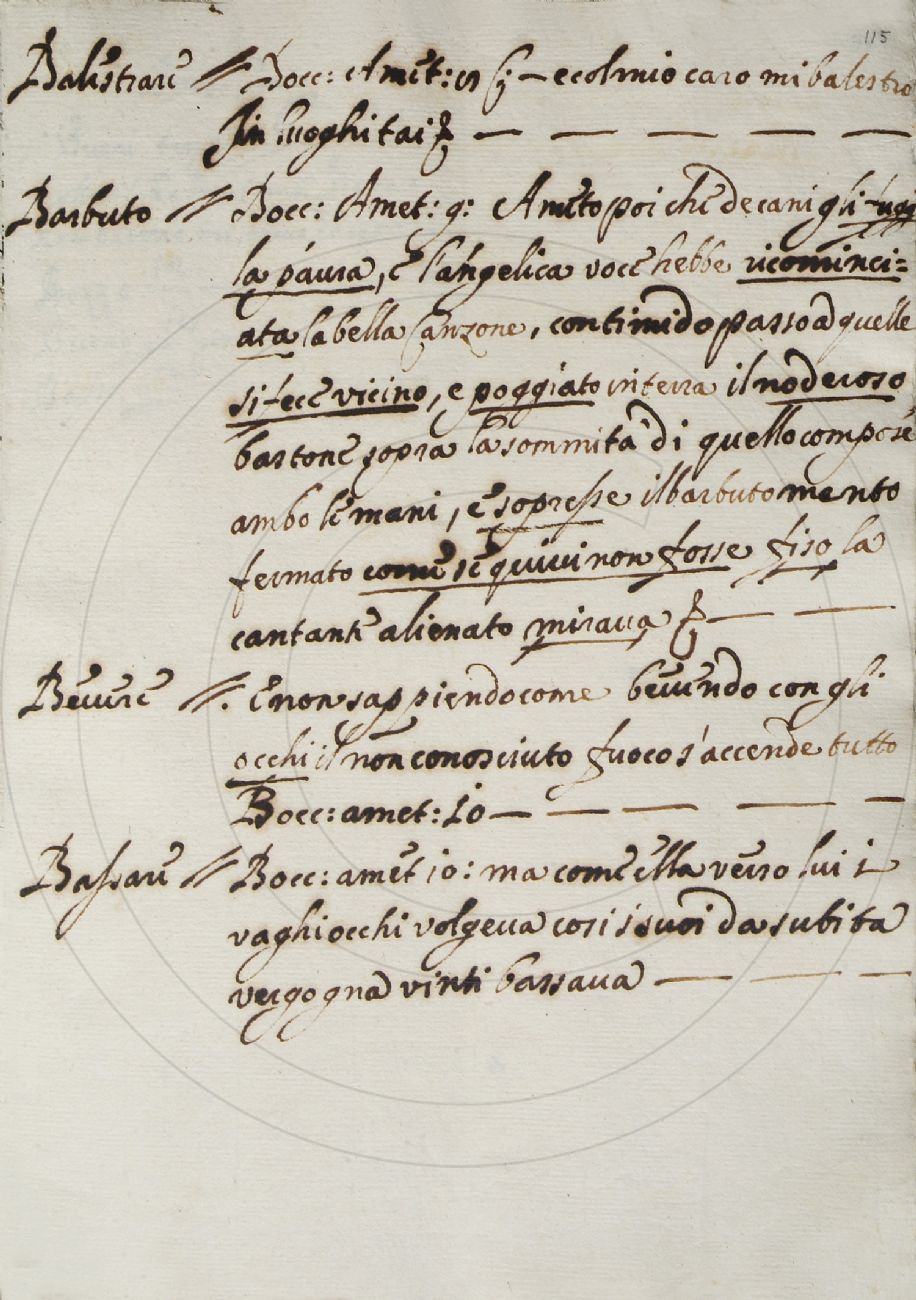 115
Balestrare // Bocc: Amet: e col mio caro mi balestro
In luoghi tai
Barbuto // Bocc: Amet: 9: Ameto poi che de cani gli fugi
la paura, e l'angelica voce hebbe ricominci=
ata la bella Canzone, con timido passo à quelle
si fece vicino, e poggiato in terra il noderoso
bastone sopra la sommità di quello compose
ambo le mani, e sopresse il barbuto mento
fermato come se quivi non fosse fiso la
cantante alienato mirava
Bevere // . E non sappiendo come bevendo con gli
occhi il non conosciuto fuoco s'accende tutto
Bocc: amet: 10
Bassare // Bocc: amet 10: ma come ella verso lui i
vaghi occhi volgeva cosi i suoi da subita
vergogna vinti bassava